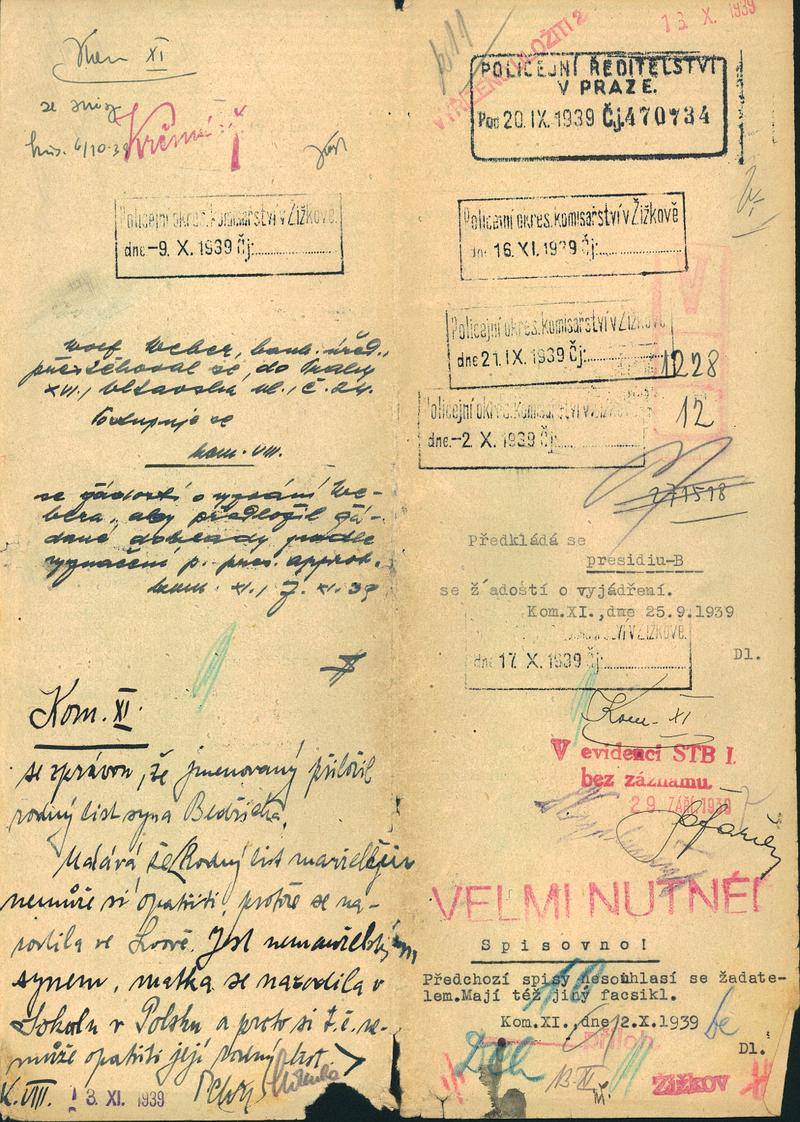 Kom XI
6/10.39
Policejní okres. komisařství v Žižkově.
dne -9. X. 1939 Čj:
Wolf Weber, bank. úřed.,
přestěhoval se do Prahy
XII., Vltavská ul. č. 24.
Postupuje se
kom. VIII.
se žádostí o vyzvání We-
bera, aby předložil žá-
dané doklady podle
vyznačení p. pres. approb.
kom. XI., 7. XI. 39
Kom. XI.
se zprávou, že jmenovaný přiložil
rodný list syna Bedřicha.
Udává že Rodný list manželčin
nemůže si opatřiti, protože se na-
rodila ve Lvově. Jest nemanželským
synem, matka se narodila v
Sokalu v Polsku a proto si t.č. ne-
může opatřiti její rodný list
K. VIII. 13. XI. 1939
13 X. 1939
POLICEJNÍ ŘEDITELSTVÍ
V PRAZE.
Pod 20. IX. 1939 Čj. 470734
Policejní okres. komisařství v Žižkově
dne 16. XI. 1939 Čj:
V
Policejní okres. komisařství v Žižkově
dne 21. IX. 1939 Čj:
1228
12
Policejní okres. komisařství v Žižkově
dne -2. X. 1939 Čj:
271518
Předkládá se
presidiu-B
se žádostí o vyjádření.
Kom.XI.,dne 25.9.1939
Dl.
dne 17. X. 1939 Čj:
Kom. XI
V evidenci STB I.
bez záznamu.
29. ZÁŘÍ 1939
VELMI NUTNÉ!
Spisovno!
Předchozí spisy nesouhlasí se žadate-
lem.Mají též jiný facsikl.
Kom.XI.,dne 12.X.1939
Dl.
příloh.
ŽIŽKOV